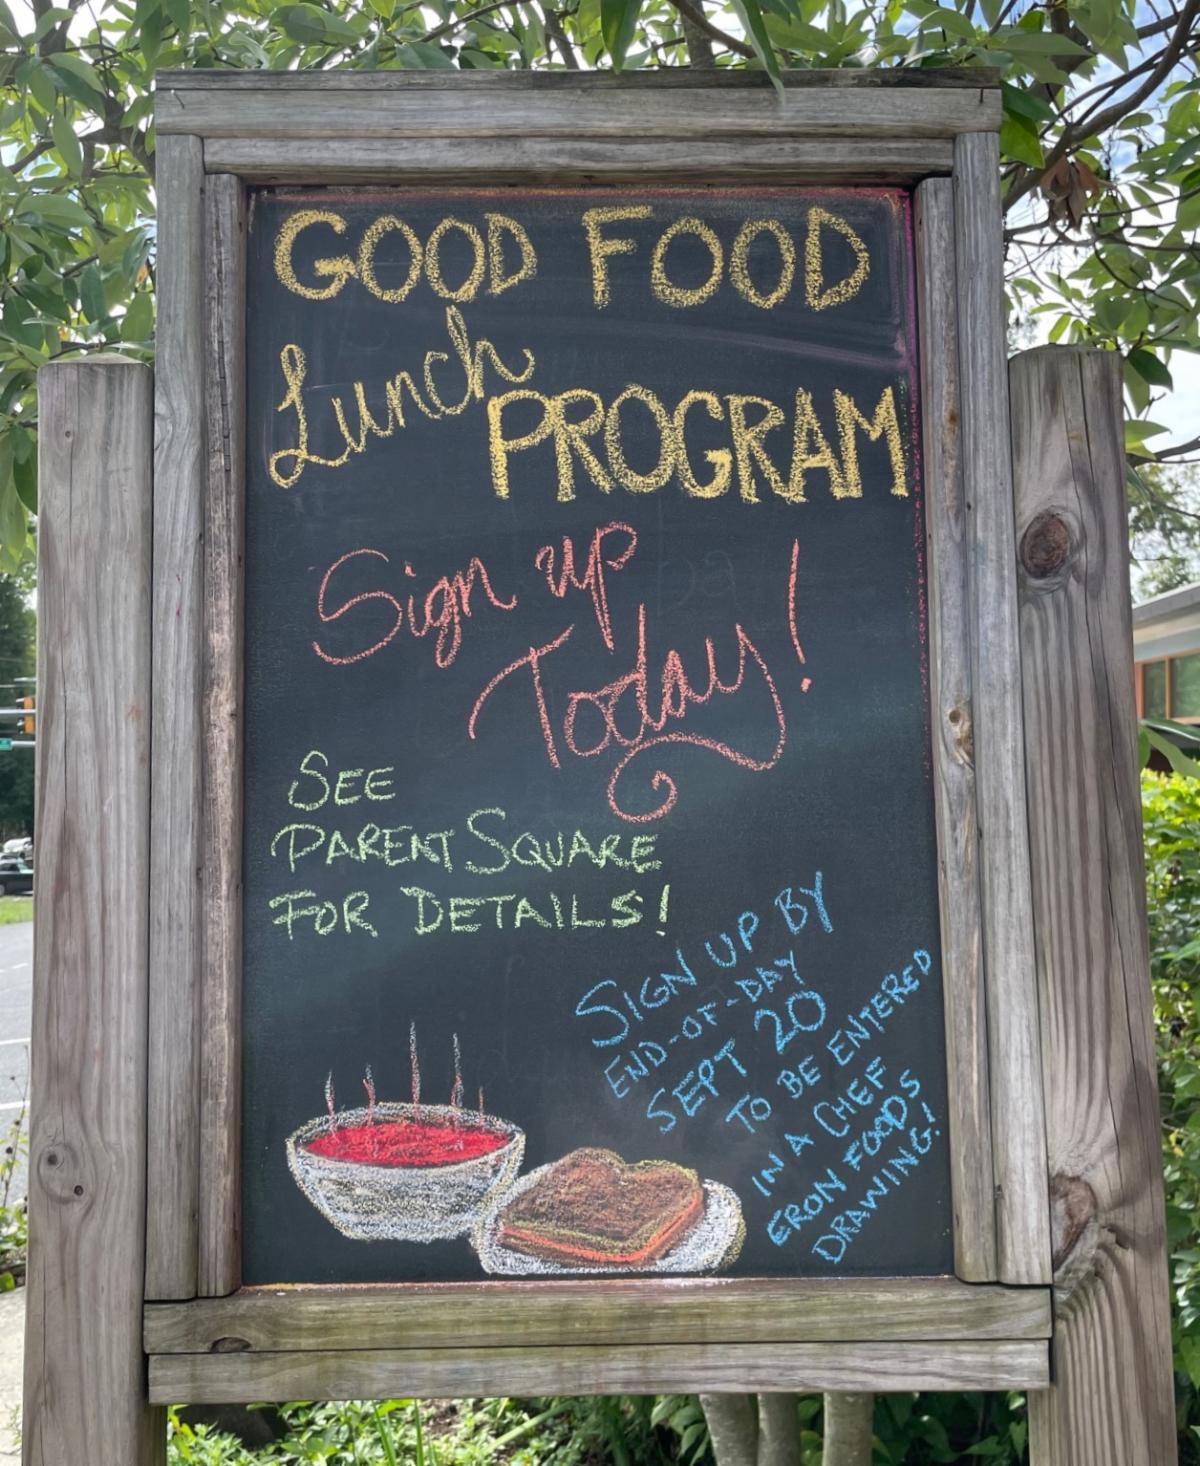 GOOD FOOD
Lunch
PROGRAM
Sign up
Today!
SEE
PARENT SQUARE
FOR DETAILS!
SIGN UP BY
END-OF-DAY
SEPT 20
TO BE ENTERED
IN A CHEF
ERON FOODS
DRAWING!